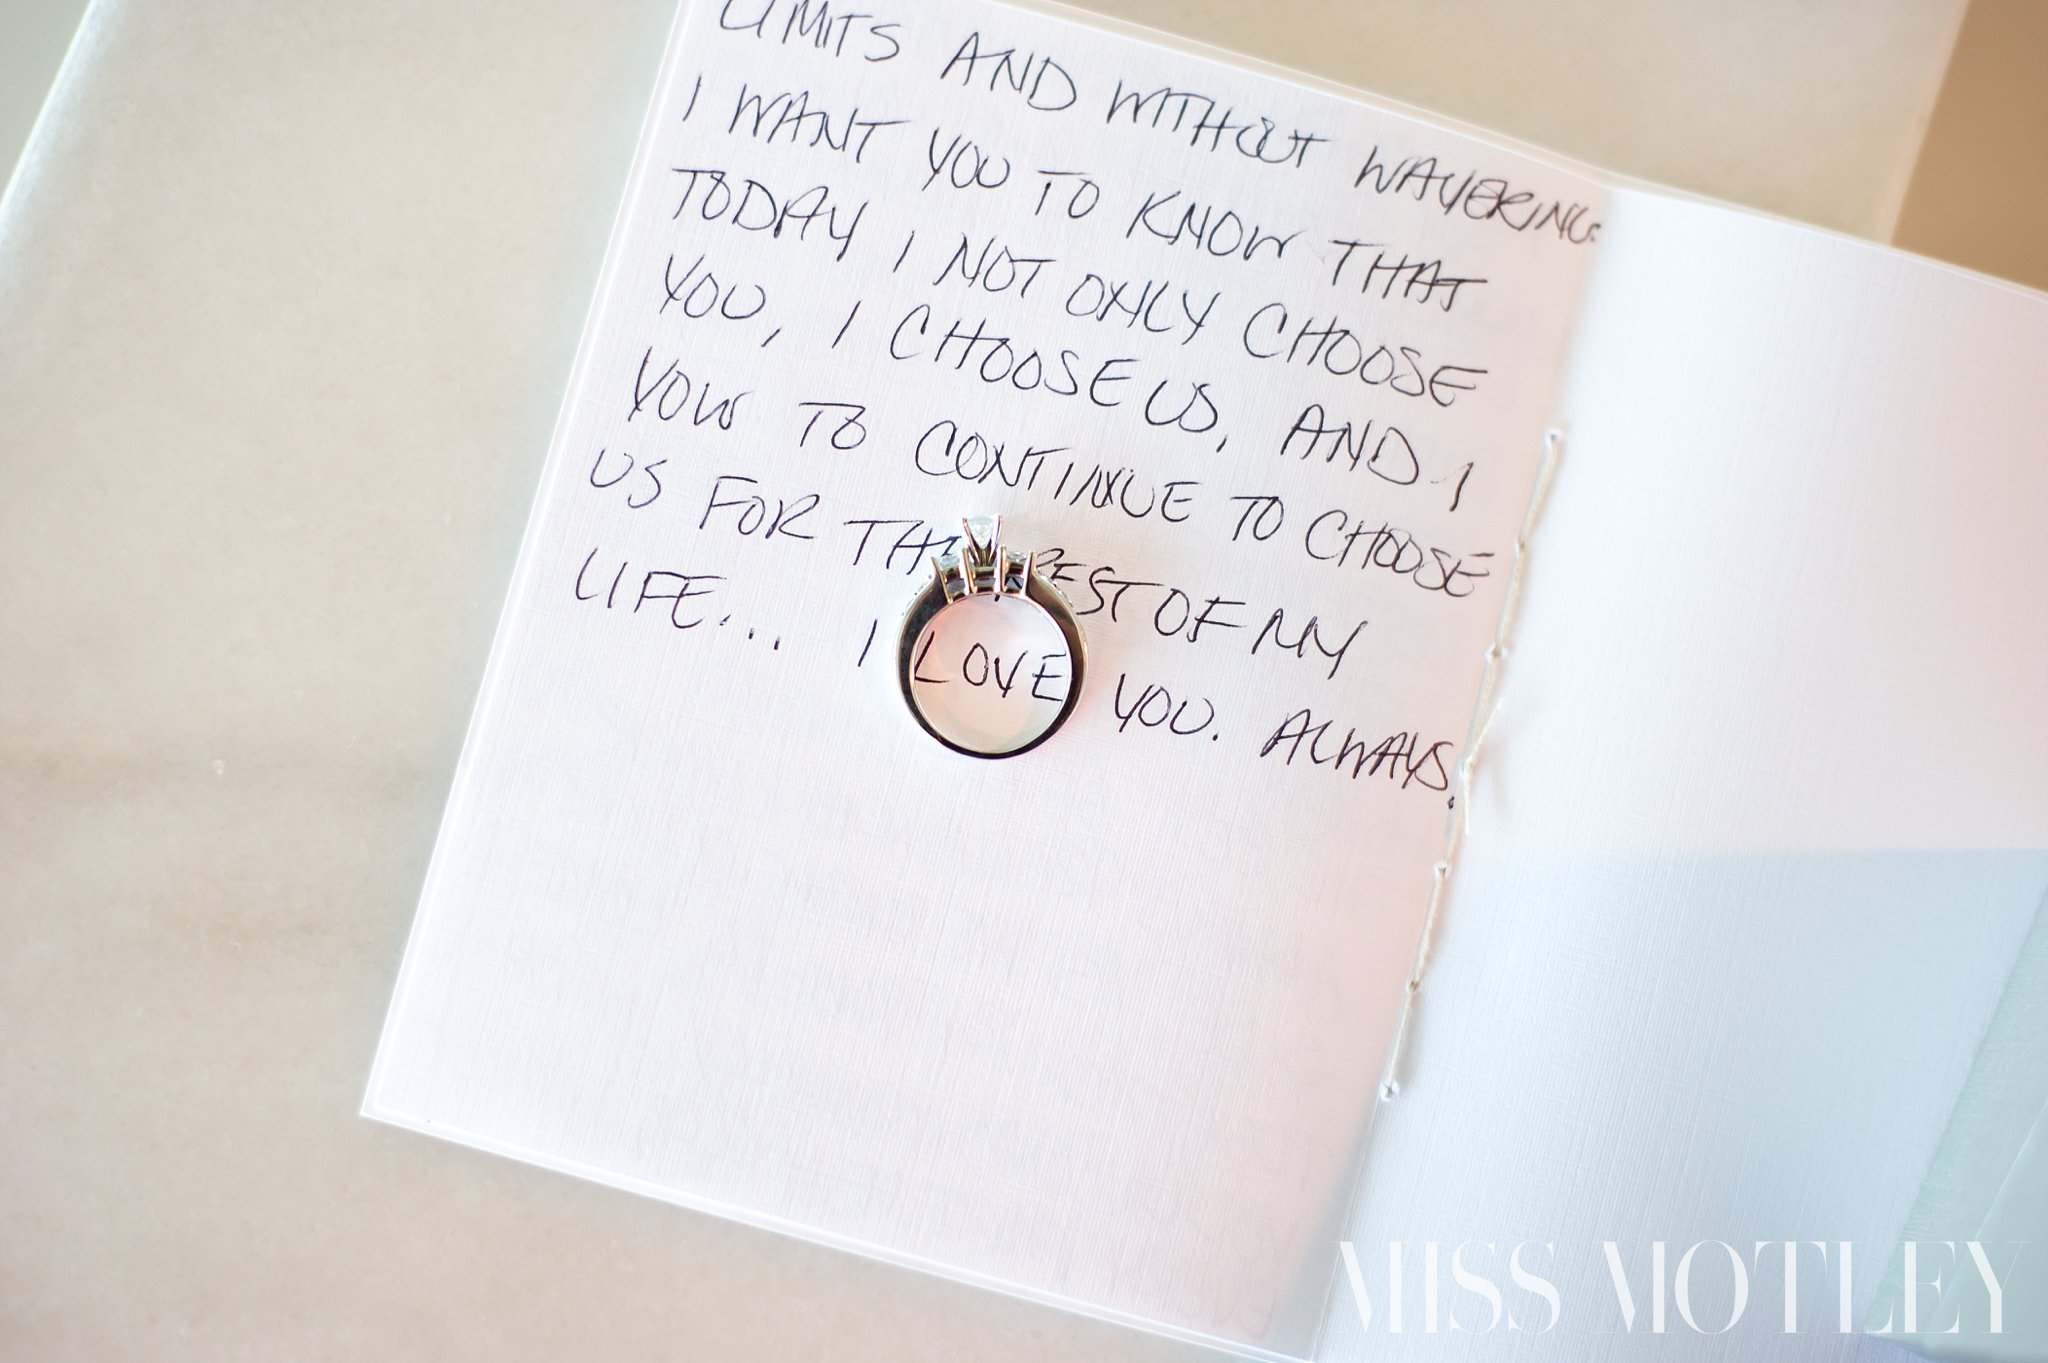 LIMITS AND WITHOUT WAVERING.
I WANT YOU TO KNOW THAT
TODAY I NOT ONLY CHOOSE
YOU, I CHOOSE US, AND I
VOW TO CONTINUE TO CHOOSE
US FOR THE REST OF MY
LIFE... I LOVE YOU. ALWAYS.
MISS MOTLEY